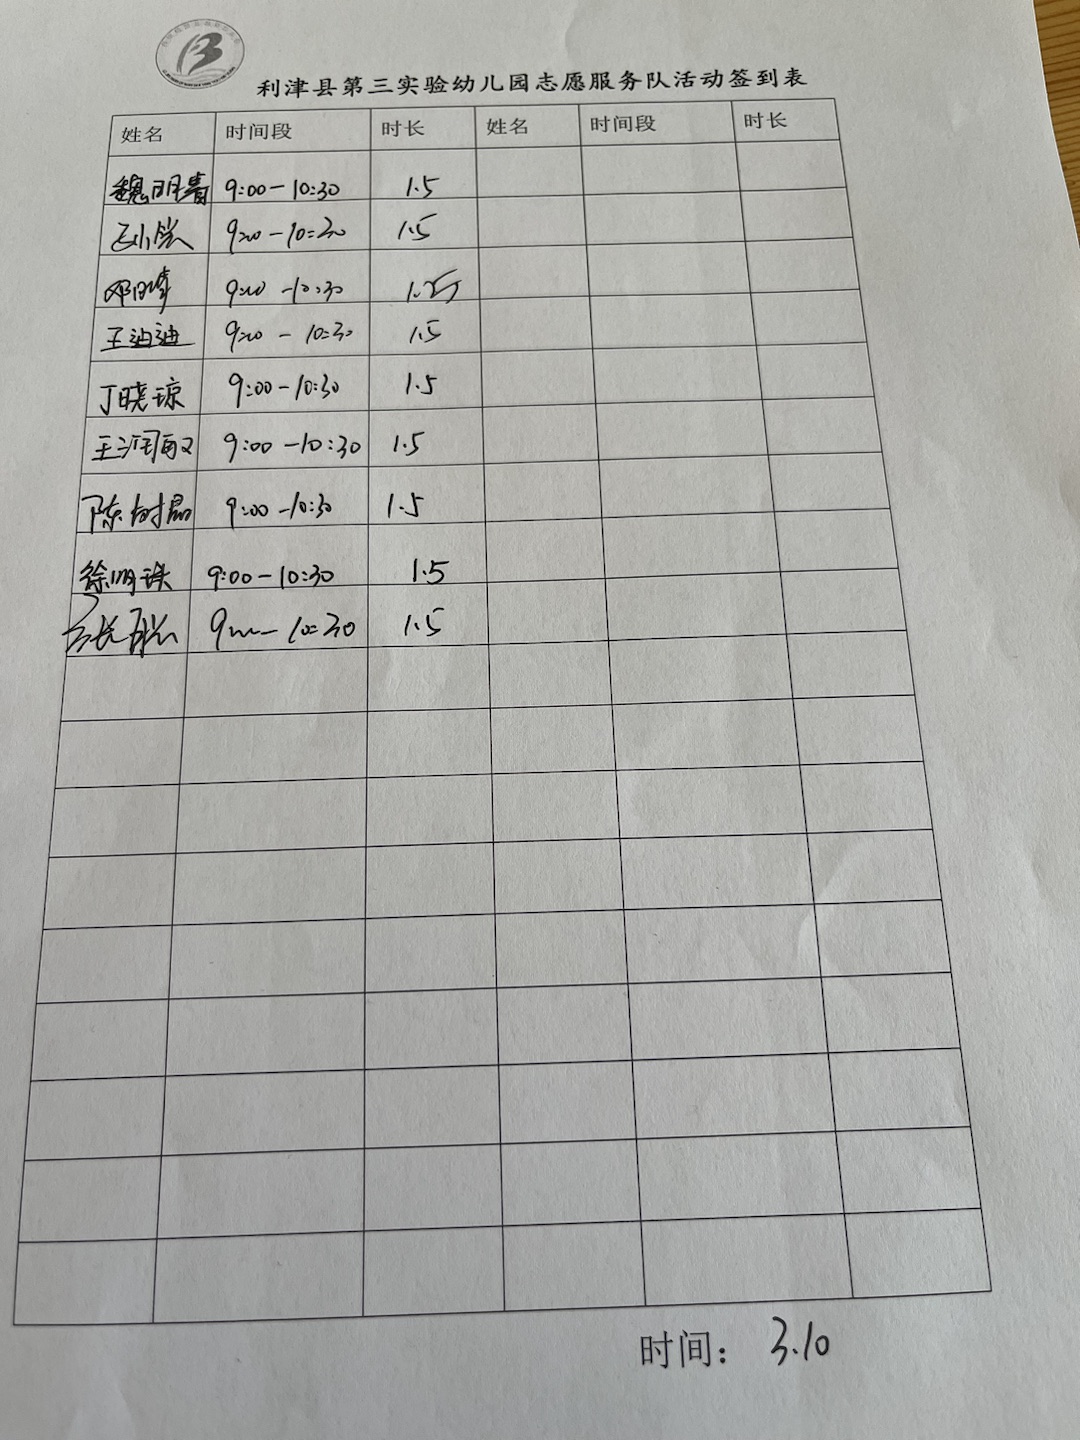 利津县第三实验幼儿园志愿服务队活动签到表
姓名 时间段 时长 姓名 时间段 时长
魏明青 9:00-10:30 1.5
9:00-10:30 1.5
9:00-10:30
王迪迪 9:00-10:30 1.5
丁晓琼 9:00-10:30 1.5
王润敏 9:00-10:30 1.5
陈树晶 9:00-10:30 1.5
徐明珠 9:00-10:30 1.5
10:30 1.5
时间： 3.10